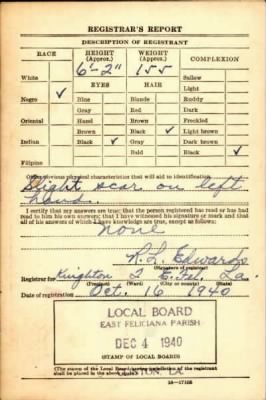 REGISTRAR'S REPORT
DESCRIPTION OF REGISTRANT
RACE HEIGHT (Approx.) WEIGHT (Approx.) COMPLEXION
6'-2" 155
White Sallow
EYES HAIR Light
Negro ✓ Blue Blonde Ruddy
Gray Red Dark
Oriental Hazel Brown Freckled
Brown Black ✓ Light brown
Indian Black ✓ Gray Dark brown
Bald Black ✓
Filipino
Other obvious physical characteristics that will aid in identification
Slight scar on left
hand.
I certify that my answers are true; that the person registered has read or has had
read to him his own answers; that I have witnessed his signature or mark and that
all of his answers of which I have knowledge are true, except as follows:
None
R. L. Edwards
(Signature of registrar)
Registrar for Knighton 2 E. Fel. La.
(Precinct) (Ward) (City or county) (State)
Date of registration Oct. 16 1940
LOCAL BOARD
EAST FELICIANA PARISH
DEC 4 1940
(STAMP OF LOCAL BOARD)
(The stamp of the Local Board having jurisdiction of the registrant
shall be placed in the above space.)
LA.
16—17105